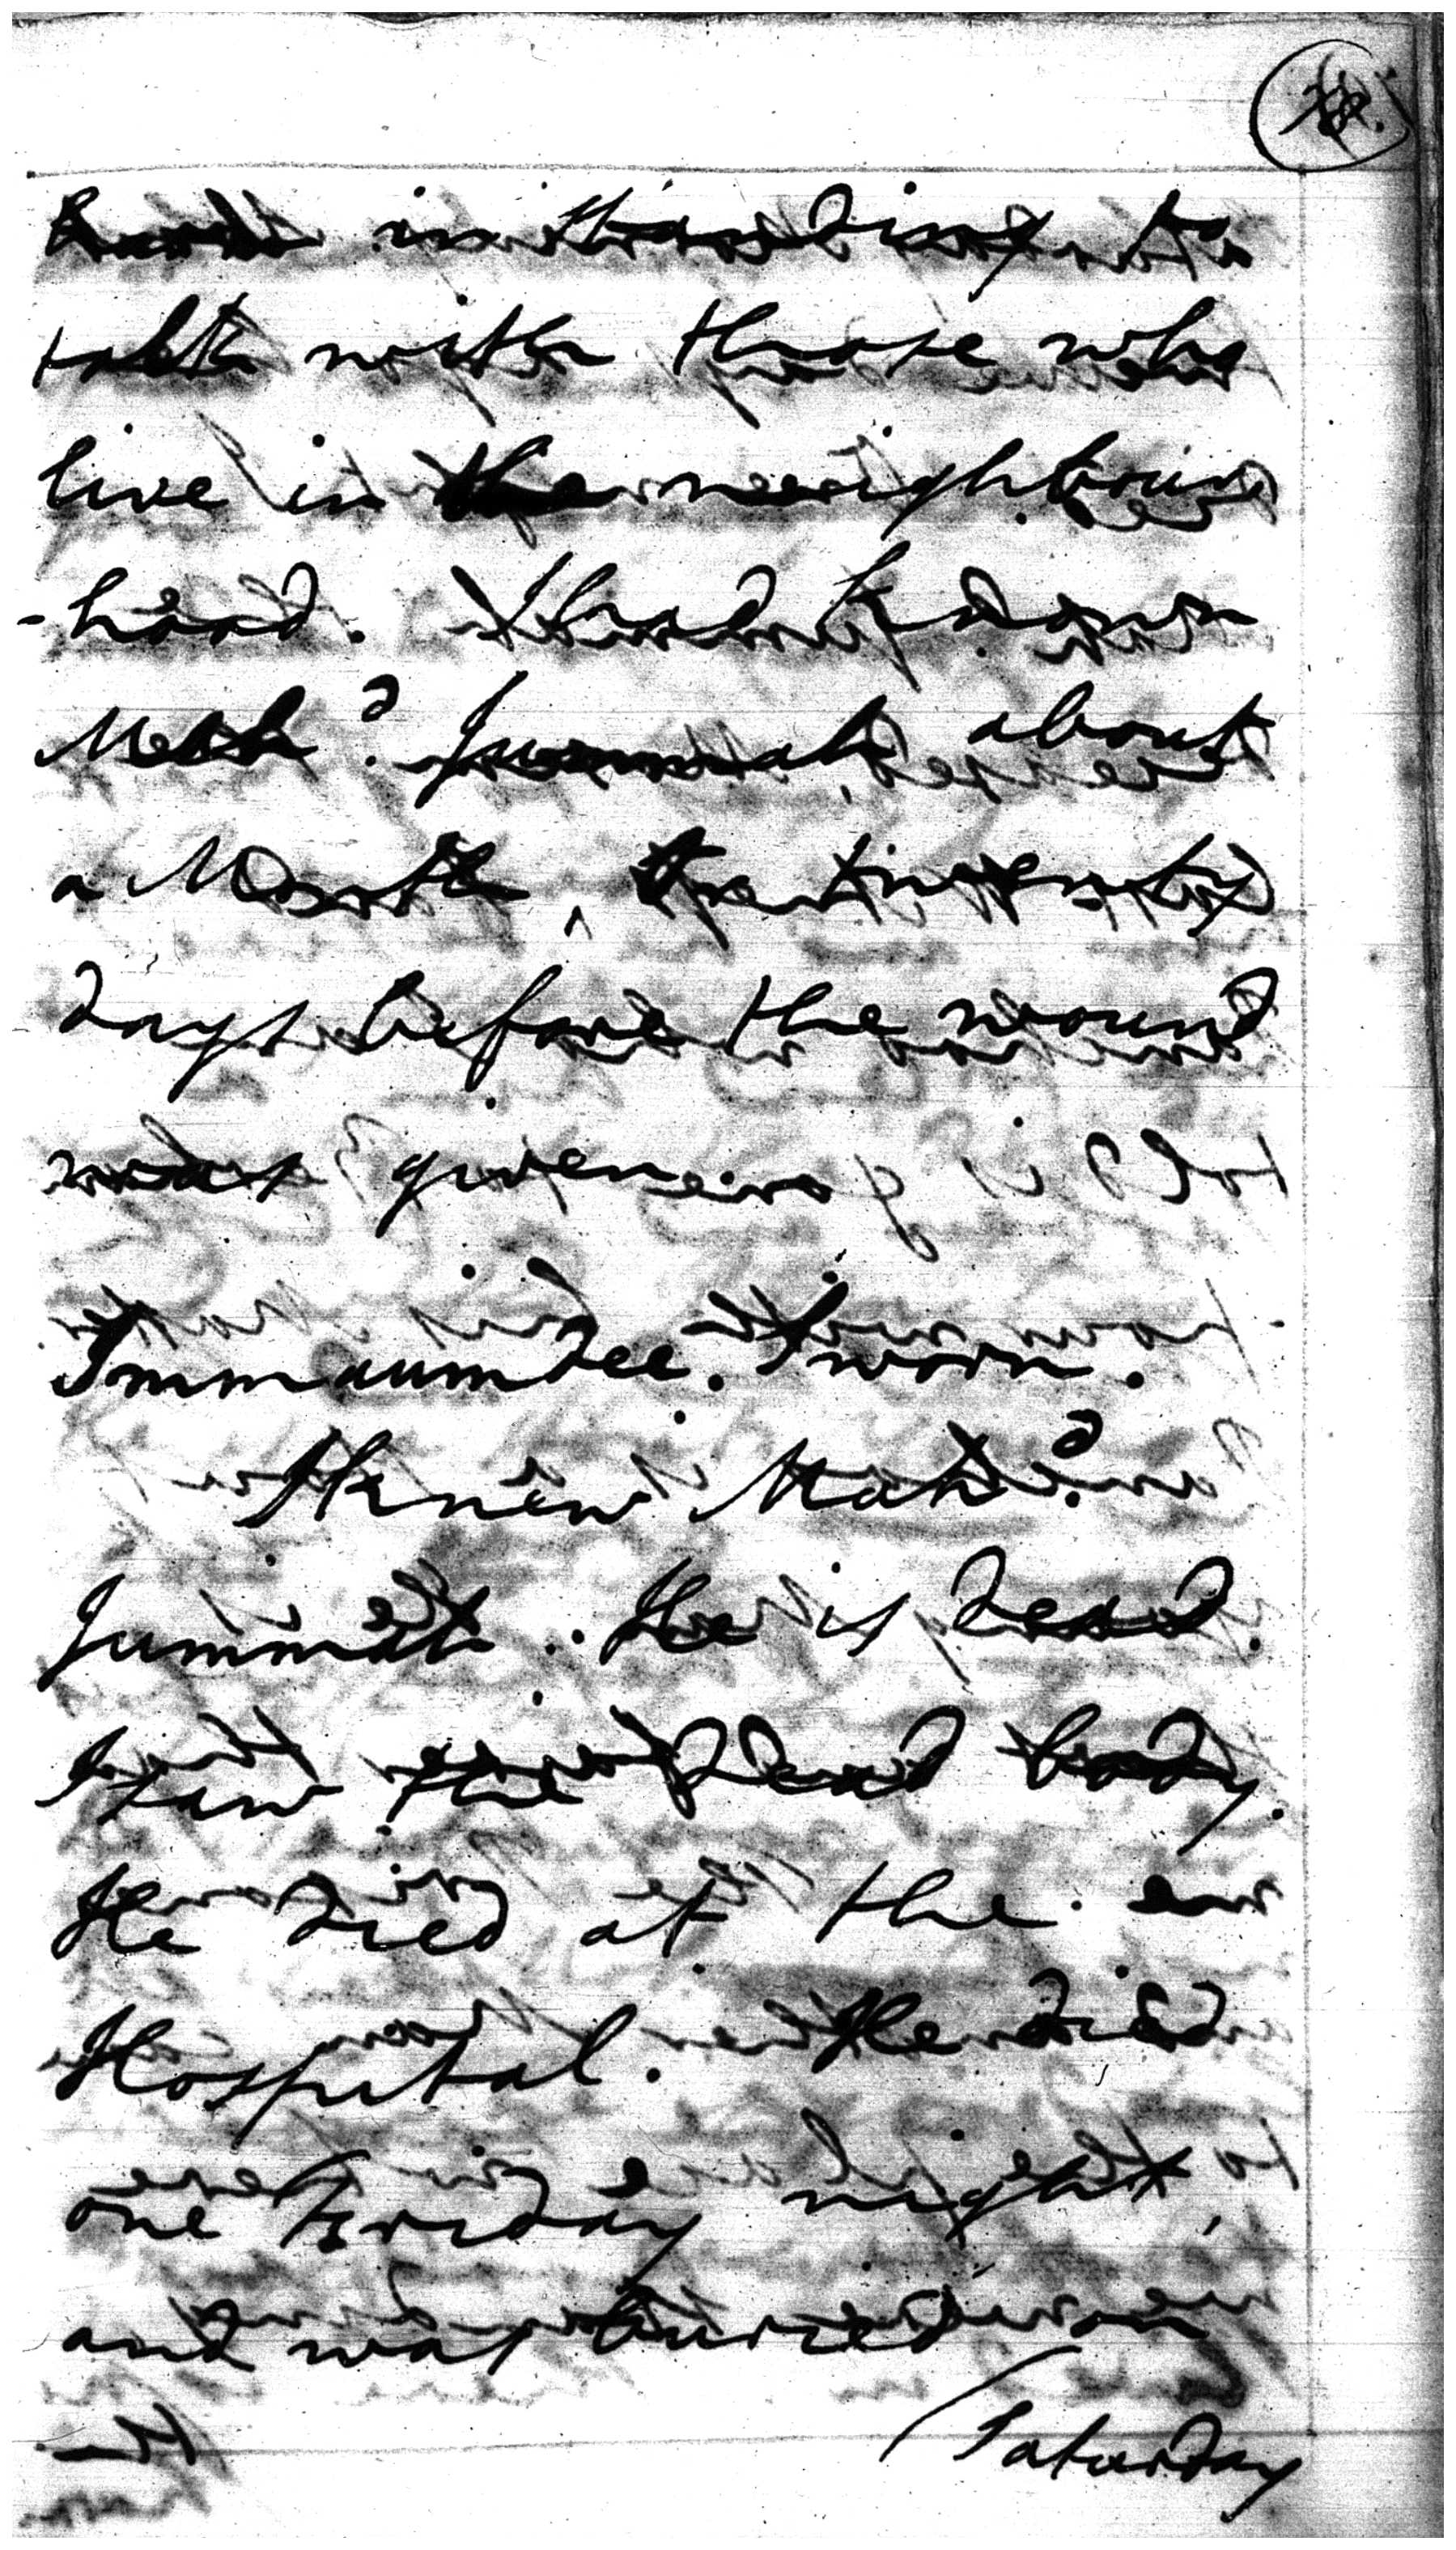 in standing to
talk with those who
live in the neighbour
-hood. I had known
Mahd. Jummah, about
a Month, or twenty
days before the wound
was given
Immaumdee. Sworn.
I knew Mahd.
Jummah. He is dead.
I saw the dead body.
He died at the
Hospital. He died
one Friday night,
and was buried on
Saturday